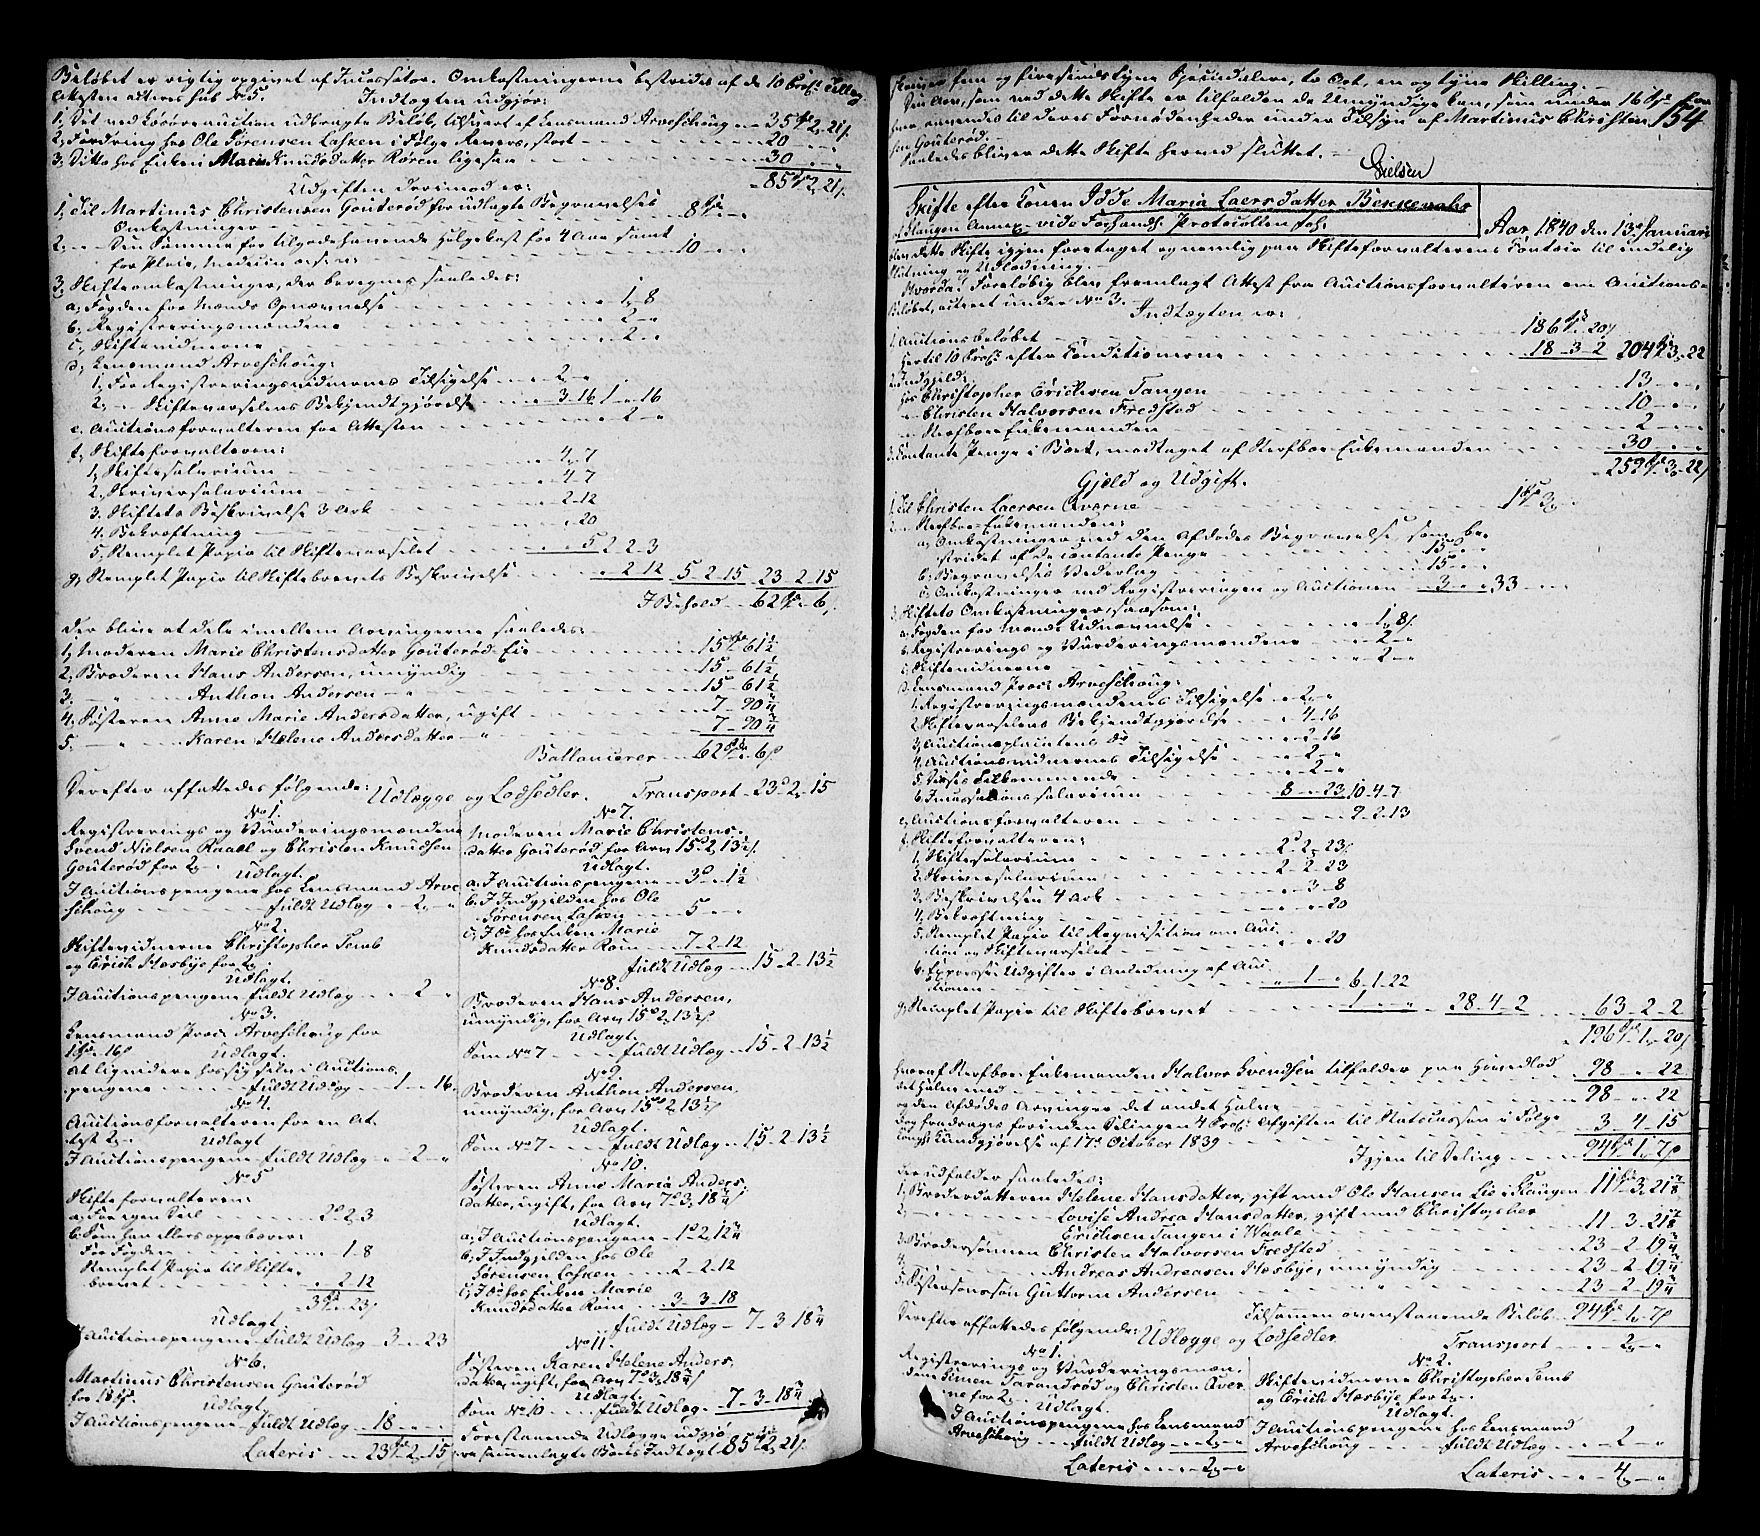 Beløbet er rigtig opgivet af Incassator. Omkostningerne bestrides af de 10 Proc. Tillæg
Attesten acteres sub No 5.
Indtægten udgjør:
1, Det ved Løsøreauction udbragte Beløb tilsvaret af Lensmand Arveschoug 35 2 21
2, Fordring hos Ole Sørensen Lasken i Følge Revers, stor 20
3, Ditto hos Enken Marie Knudsdatter Røren ligesaa 30
85 2 21
Udgiften derimod er:
1, Til Martinus Christensen Gouterød for udlagte Begravelses
Omkostninger 8
2, Den Samme for tilgodehavende Føllgekost for 4 Aar samt
for Pleie, Medicin 10
3, Skifteomkostninger, der beregnes saaledes:
a, Fogden for Mænds Opnævnelse 1 8
b, Registreringsmændene 2
c, Skiftevidnerne 2
d, Lensmand Arveschoug:
1, For Registreringsvidnernes Tilsigelse 2
2, Skiftevarselens Bekjendtgjørelse 3 16 1 16
e, Auctionsforvalteren for Attesten 2
f, Skifteforvalteren:
1, Skiftesalarium 4 7
2, Skriversalarium 4 7
3. Skiftets Beskrivelse 3 Ark 2 12
4. Bekræftning 20
5, Stemplet Papir til Skiftevarselet 5 2 2 3
g, Stemplet Papir til Skiftebrevets Beskrivelse 2 12 5 2 15 23 2 15
I Behold 62 6
der blive at dele imellem Arvingerne saaledes:
1, Moderen Marie Christensdatter Gouterød Eie 15 61½
2, Broderen Hans Andersen, umyndig 15 61½
3, Anthon Andersen 15 61½
4, Søsteren Anne Marie Andersdatter, ugift 7 90
5, Karen Helene Andersdatter 7 90
Ballancerer 62 6
Derefter affattedes følgende:
Udlægge og Lodsedler.
No 1.
Registrerings og Vurderingsmændene
Svend Nielsen Raael og Christen Knudsen
Gouterød for 2
Udlagt.
I Auctionspengene hos Lensmand Arve
schoug fuldt Udlæg 2
No 2.
Skiftevidnerne Christopher Tomb
og Erich Hæsbye for 2
Udlagt.
I Auctionspengene fuldt Udlæg 2
No 3.
Lensmand Arveschoug for
1 16
Udlagt.
At liqvidere hos sig selv i Auctions
pengene fuldt Udlæg 1 16
No 4.
Auctionsforvalteren for en At
test 2
Udlagt
I Auctionspengene fuldt Udlæg 2
No 5
Skifteforvalteren:
a, For egen Deel 2 2 3
b, Som han ellers oppebærer:
For Fogden 1 8
Stemplet Papir til Skifte
brevet 2 12
3 23
Udlagt
I Auctionspengene fuldt Udlæg 3 23
No 6.
Martinus Christensen Gouterød
for 18
Udlagt
I Auctionspengene fuldt Udlæg 18
Lateris 23 2 15
Transport 23 2 15
No 7.
Moderen Marie Christens
datter Gouterød for Arv 15 2 13½
Udlagt.
a, I Auctionspengene 3 1½
b, I Indgjelden hos Ole
Sørensen Lasken 5
c, I do hos Enken Marie
Knudsdatter Røren 7 2 12
fuldt Udlæg 15 2 13½
No 8.
Broderen Hans Andersen,
umyndig, for Arv 15 2 13½
Udlagt.
Som No 7 fuldt Udlæg 15 2 13½
No 9.
Broderen Anthon Andersen,
umyndig, for Arv 15 2 13½
Udlagt.
Som No 7 fuldt Udlæg 15 2 13½
No 10.
Søsteren Anne Marie Anders
datter, ugift, for Arv 7 3 18
Udlagt.
a, I Auctionspengene 1 2 12
b, I Indgjelden hos Ole
Sørensen Lasken 2 2 12
c, I do hos Enken Marie
Knudsdatter Røren 3 3 18
fuldt Udlæg 7 3 18
No 11.
Søsteren Karen Helene Anders
datter, ugift, for Arv 7 3 18
Udlagt.
Som No 10 fuldt Udlæg 7 3 18
Forestaaende Udlægge udgjø
re sammenlagte Boets Indtægt 85 2 21
fem og fiirsindstyve Speciedaler, to Ort, en og tyve Skilling.
Den Arv, som ved dette Skifte er tilfalden de Umyndige kan, som under 16
anvendes til deres Fornødenheder under Tilsyn af Martinus Christen 154
sen Gouterød.
Saaledes bliver dette Skifte herved sluttet.
Nielsen
Skifte efter Konen Idde Maria Laersdatter Bekkevahr
i Slangen Annex vide Forhandl. Protocollen Fol.
Aar 1840 den 13de Januari
blev dette Skifte igjen foretaget og nemlig paa Skifteforvalterens Contoir til endelig
Slutning og Udlodning.
Hvorda: Foreløbig blev fremlagt Attest fra Auctionsforvalteren om Auctions
Beløbet, acteret under No 3.
Indtægten er:
1, Auctionsbeløbet 186 20
Hertil 10 Proc. efter Conditionerne 18 3 2 204 3 22
2, Indgjeld:
hos Christopher Erichsen Tangen 13
Christen Halvorsen Fredstad 10
Stervboe Enkemanden 2
3, Contante Penge i Boet, modtaget af Stervboe Enkemanden 30
259 3 22
Gjeld og Udgift.
1, Til Christen Laersen Qværne 1 3
2, Stervboe Enkemanden:
a, Omkostninger ved den Afdødes Begravelse som be
stridet af de contante Penge 15
b, Begravelses Vederlag 15
c, Omkostninger ved Registreringen og Auctionen 3 33
3, Skiftets Omkostninger, saasom:
a, Fogden for Mænds Udnævnelse 1 8
b, Registrerings og Vurderingsmændene 2
c, Skiftevidnerne 2
d, Lensmand Arveschoug:
1, Registreringsmændenes Tilsigelse 2
2, Skiftevarselens Bekjendtgjørelse 4 16
3, Auctionsplacatens do 2 16
4, Auctionsvidnernes Tilsigelse 2
5, Deres Tilkommende 2
6, Incassationssalarium 8 23 10 4 7
e, Auctionsforvalteren 9 2 13
f, Skifteforvalteren:
1, Skiftesalarium 2 2 23
2, Skriversalarium 2 2 23
3, Beskrivelsen 4 Ark 3 8
4, Bekræftning 20
5, Stemplet Papir til Reqvisition om Auc
tion og Skiftevarselet 20
6, Expresse Udgifter i Anledning af Auc
tionen 1 6 1 22
g, Stemplet Papir til Skiftebrevet 1 28 4 2 63 2 2
196 1 20
Heraf Stervboe Enkemanden Halvor Svendsen tilfalder paa Hovedlod
det Halve med 98 22
og den Afdødes Arvinger det andet Halve 98 22
Dog fradrages forinden Delingen 4 Proc. Afgiften til Statscassen i Følge
Kundgjørelse af 17de October 1839 3 4 15
Igjen til Deling 94 1 7
der udfalder saaledes:
1, Broderdatteren Helene Hansdatter, gift med Ole Hansen Lie i Slangen 11 3 21
2, Lovise Andrea Hansdatter, gift med Christopher
Erichsen Tangen i Waale 11 3 21
3, Brodersønnen Christen Halvorsen Fredsted 23 2 19
4, Andreas Andreasen Hæsbye, umyndig 23 2 19
5, Søstersønssøn Guttorm Andersen 23 2 19
Tilsammen ovenstaaende Beløb 94 1 7
Derefter affattedes følgende: Udlægge og Lodsedler
No 1.
Registrerings og Vurderingsmæn
dene Simen Tarandrød og Christen Qver
ne for 2
Udlagt.
I Auctionspengene hos Lensmand
Arveschoug fuldt Udlæg 2
Lateris 2
Transport 2
No 2.
Skiftevidnerne Christopher Tomb
og Erich Hæsbye for 2
Udlagt.
I Auctionspengene hos Lensmand
Arveschoug fuldt Udlæg 2
Lateris 4